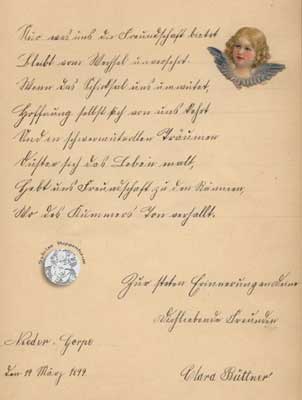 Nur was uns die Freundschaft bietet
Bleibt vom Wechsel unversehrt
Wenn das Schicksal uns umwütet,
Hoffnung selbst sich von uns kehrt
Und in schwermutvollen Träumen
Düster sich das Leben malt,
Hebt uns Freundschaft zu den Räumen,
Wo des Kummers Ton verhallt.
Zur steten Erinnerung an Deine
Dichliebende Freundin
Clara Büttner
Nieder-
den 19 März 1899.